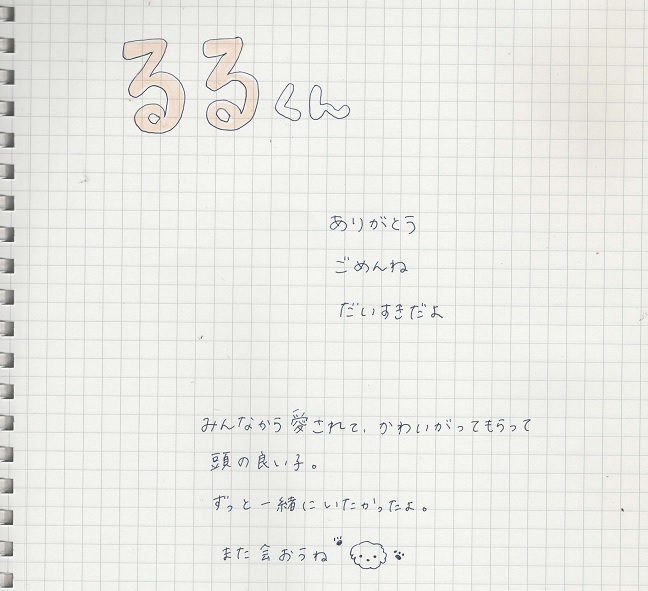 るるくん
ありがとう
ごめんね
だいすきだよ
みんなから愛されて、かわいがってもらって
頭の良い子。
ずっと一緒にいたかったよ。
また会おうね